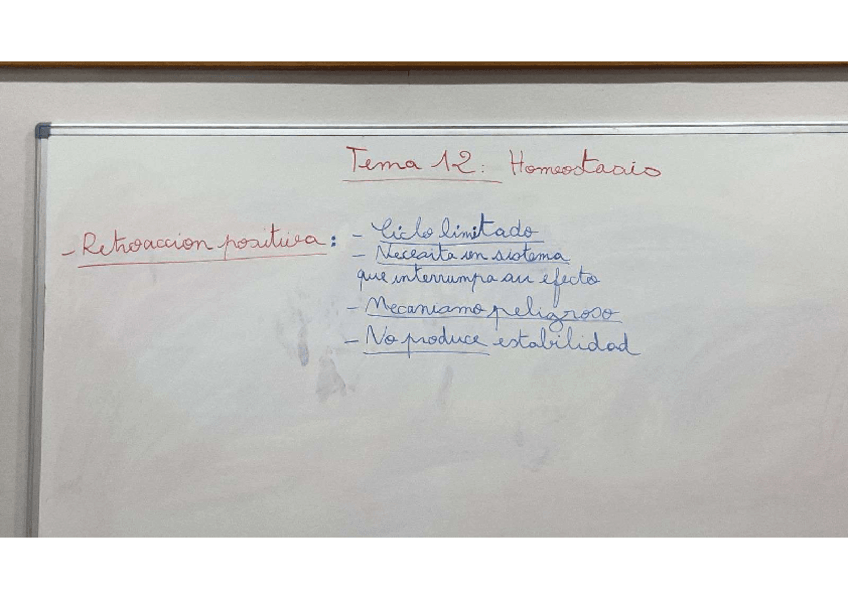 Tema 12: Homeostasis
- Retroaccion positiva: - Ciclo limitado
- Necesita un sistema
que interrumpa su efecto
- Mecanismo peligroso
- No produce estabilidad